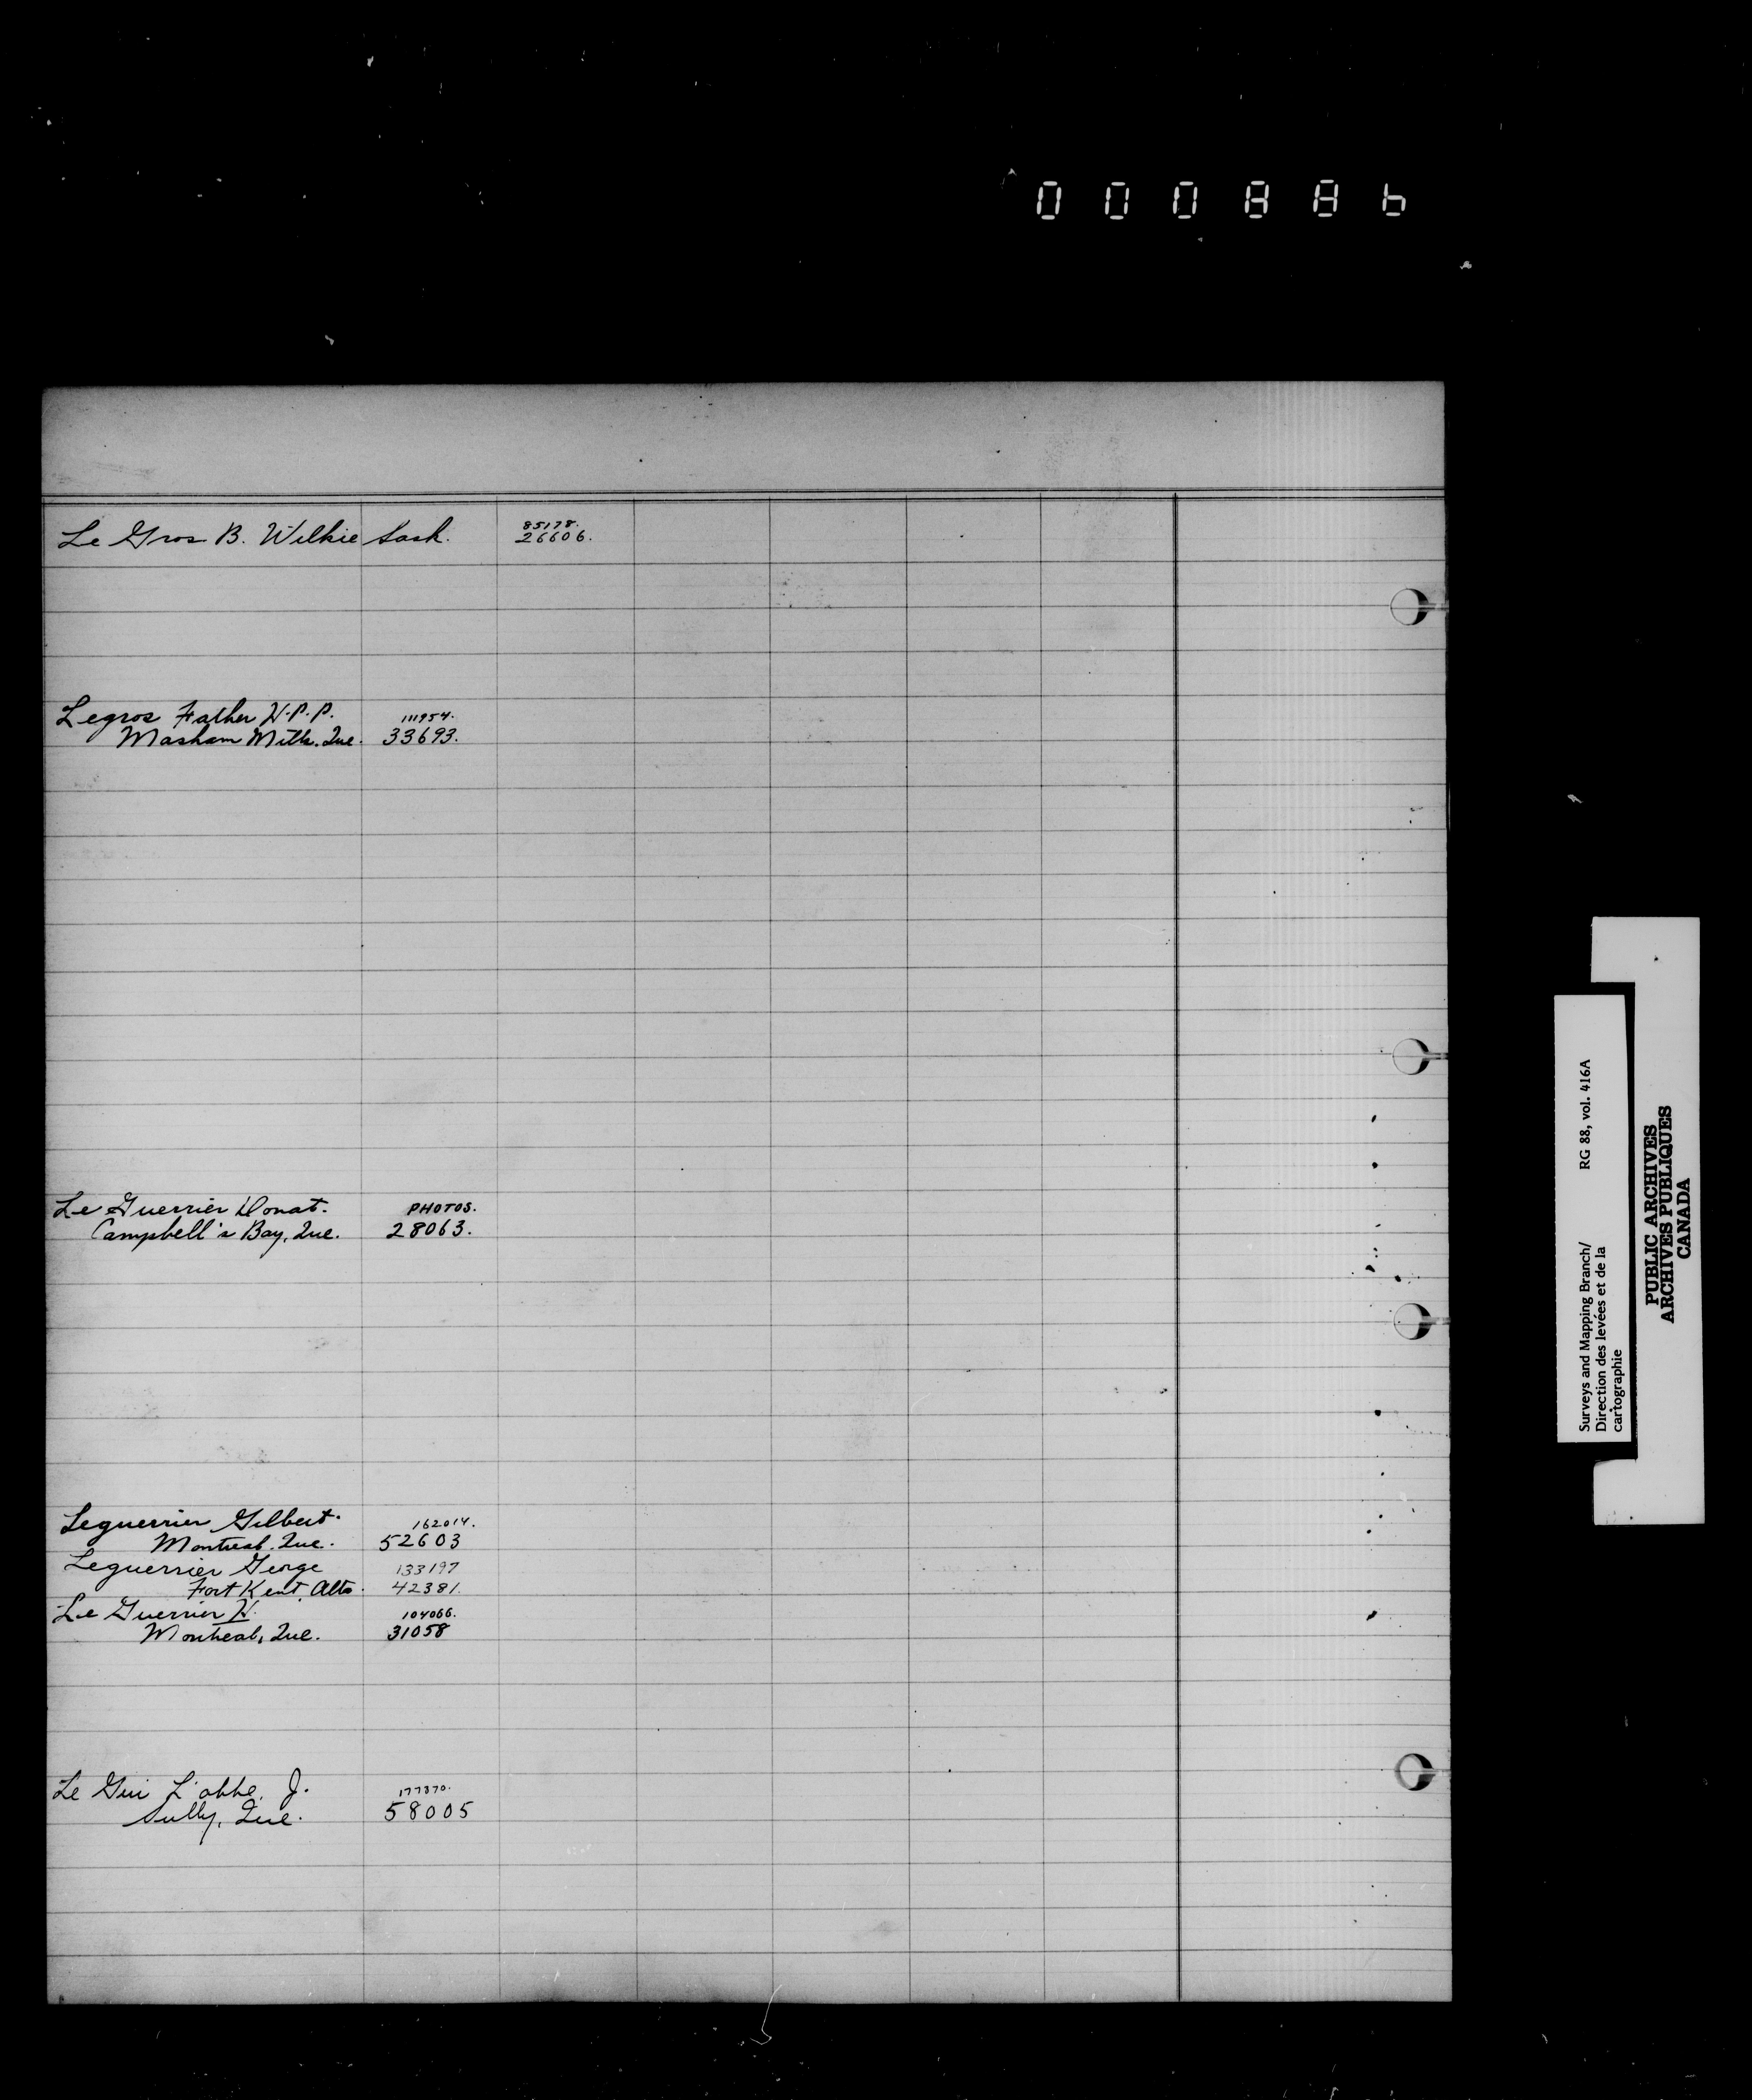 000886
Le Gros B. Wilkie Sask. 85178.
26606.
Legros Father H.P.P. 111954.
Masham Mills. Que. 33693.
Le Guerrier Donat. PHOTOS.
Campbell's Bay, Que. 28063.
Leguerrier Gilbert. 162014.
Montreal. Que. 52603
Leguerrier George 133197
Fort Kent, Alta. 42381.
Le Guerrier H. 104066.
Montreal, Que. 31058
Le Gui L'abbe, J. 177370.
Sully, Que. 58005
Surveys and Mapping Branch/ RG 88, vol. 416A
Direction des levées et de la
cartographie
PUBLIC ARCHIVES
ARCHIVES PUBLIQUES
CANADA